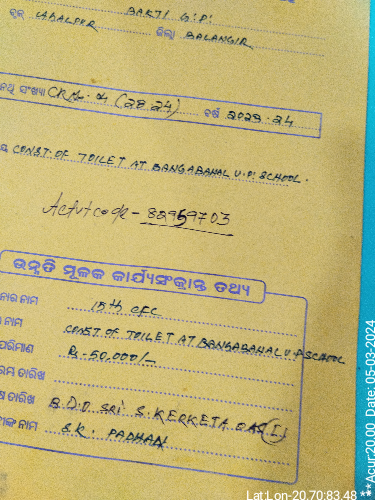 BARTI G.P.
ବ୍ଲକ୍ UDALPUR ଜିଲ୍ଲା BALANGIR
ସଂଖ୍ୟା CRM. 4 (28-24) ବର୍ଷ 2023-24
CONST. OF TOILET AT BANGABAHAL U.P. SCHOOL.
Activt code - 88959703
ଉନ୍ନତି ମୂଳକ କାର୍ଯ୍ୟସଂକ୍ରାନ୍ତ ତଥ୍ୟ
ନାମ 15th CFC
ନାମ CONST. OF TOILET AT BANGABAHAL U.P SCHOOL
ପରିମାଣ Rs. 50,000/-
ତାରିଖ
ତାରିଖ B.D.O SRI S. KERKETA OAS (I)
ନାମ SK. PADHAN
Lat Lon-20.70:83.48 ***Acur:20.00 Date: 05-03-2024